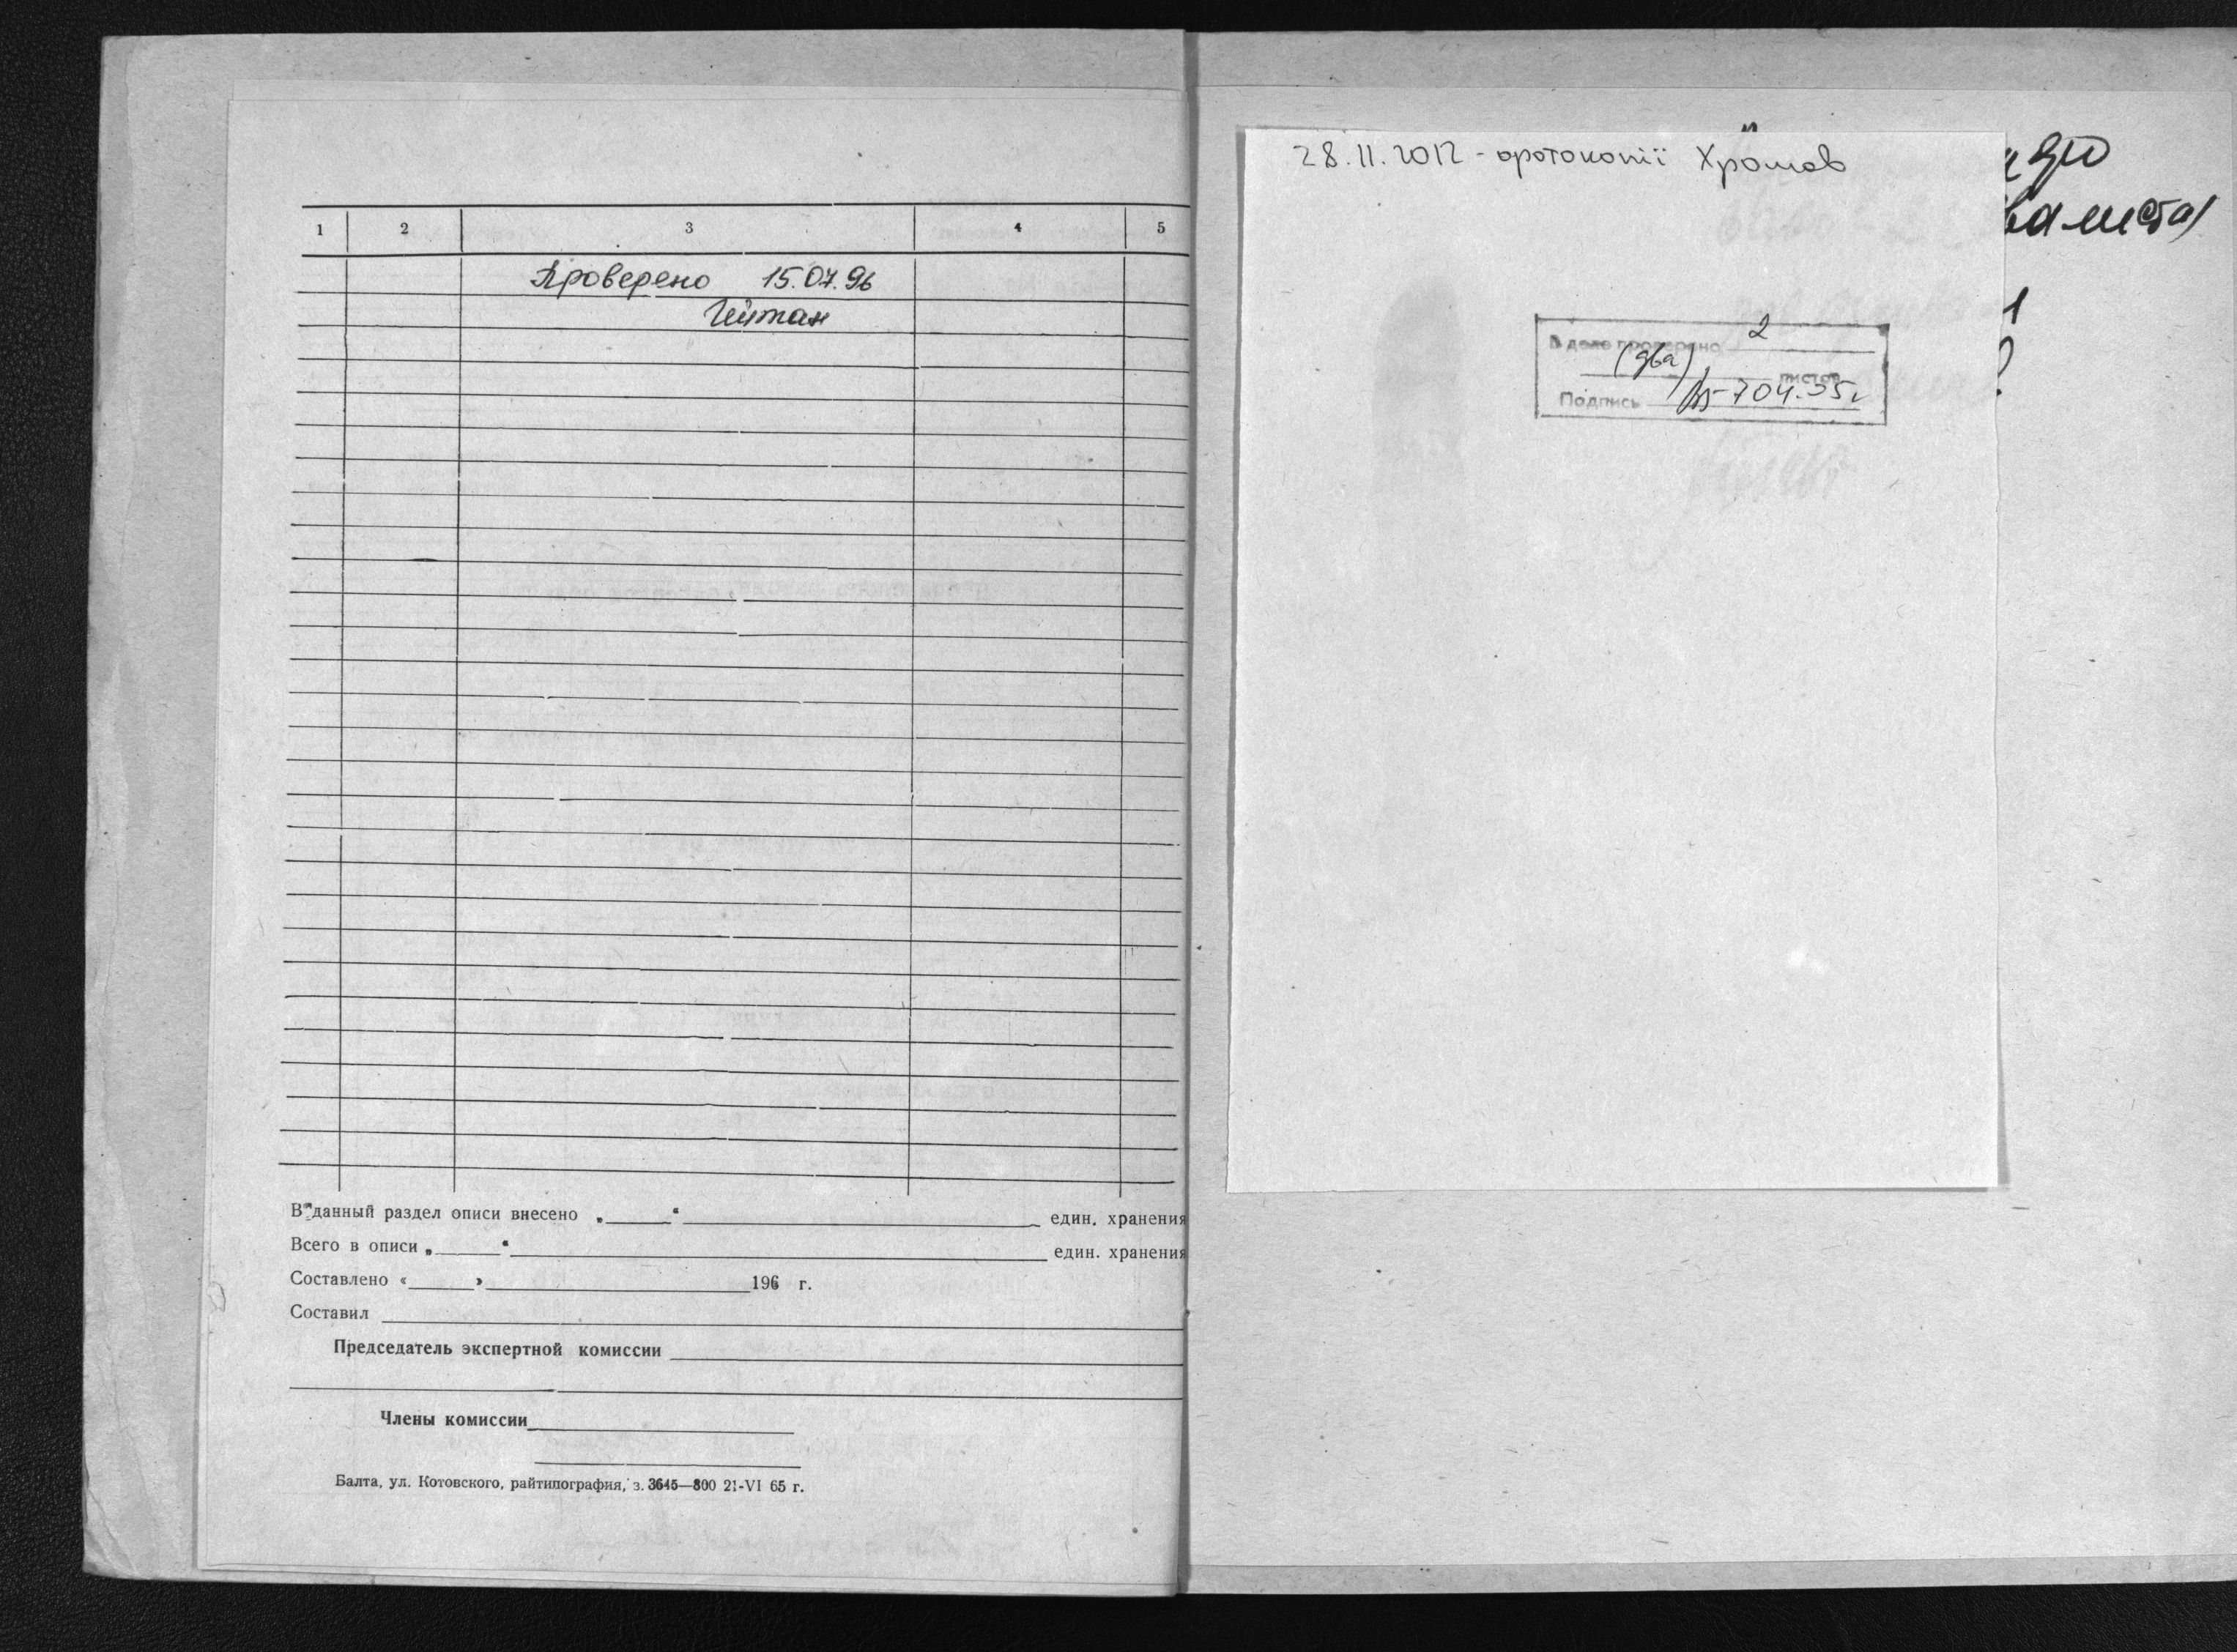 1 2 3 4 5
Проверено 15.07.96
В данный раздел описи внесено „ “ един. хранения
Всего в описи „ “ един. хранения
Составлено « » 196 г.
Составил
Председатель экспертной комиссии
Члены комиссии
Балта, ул. Котовского, райтипография, з. 3645—800 21-VI 65 г.
28.11.2012 - фотокопії Хромов
В деле проверено 2
(два) листов
Подпись